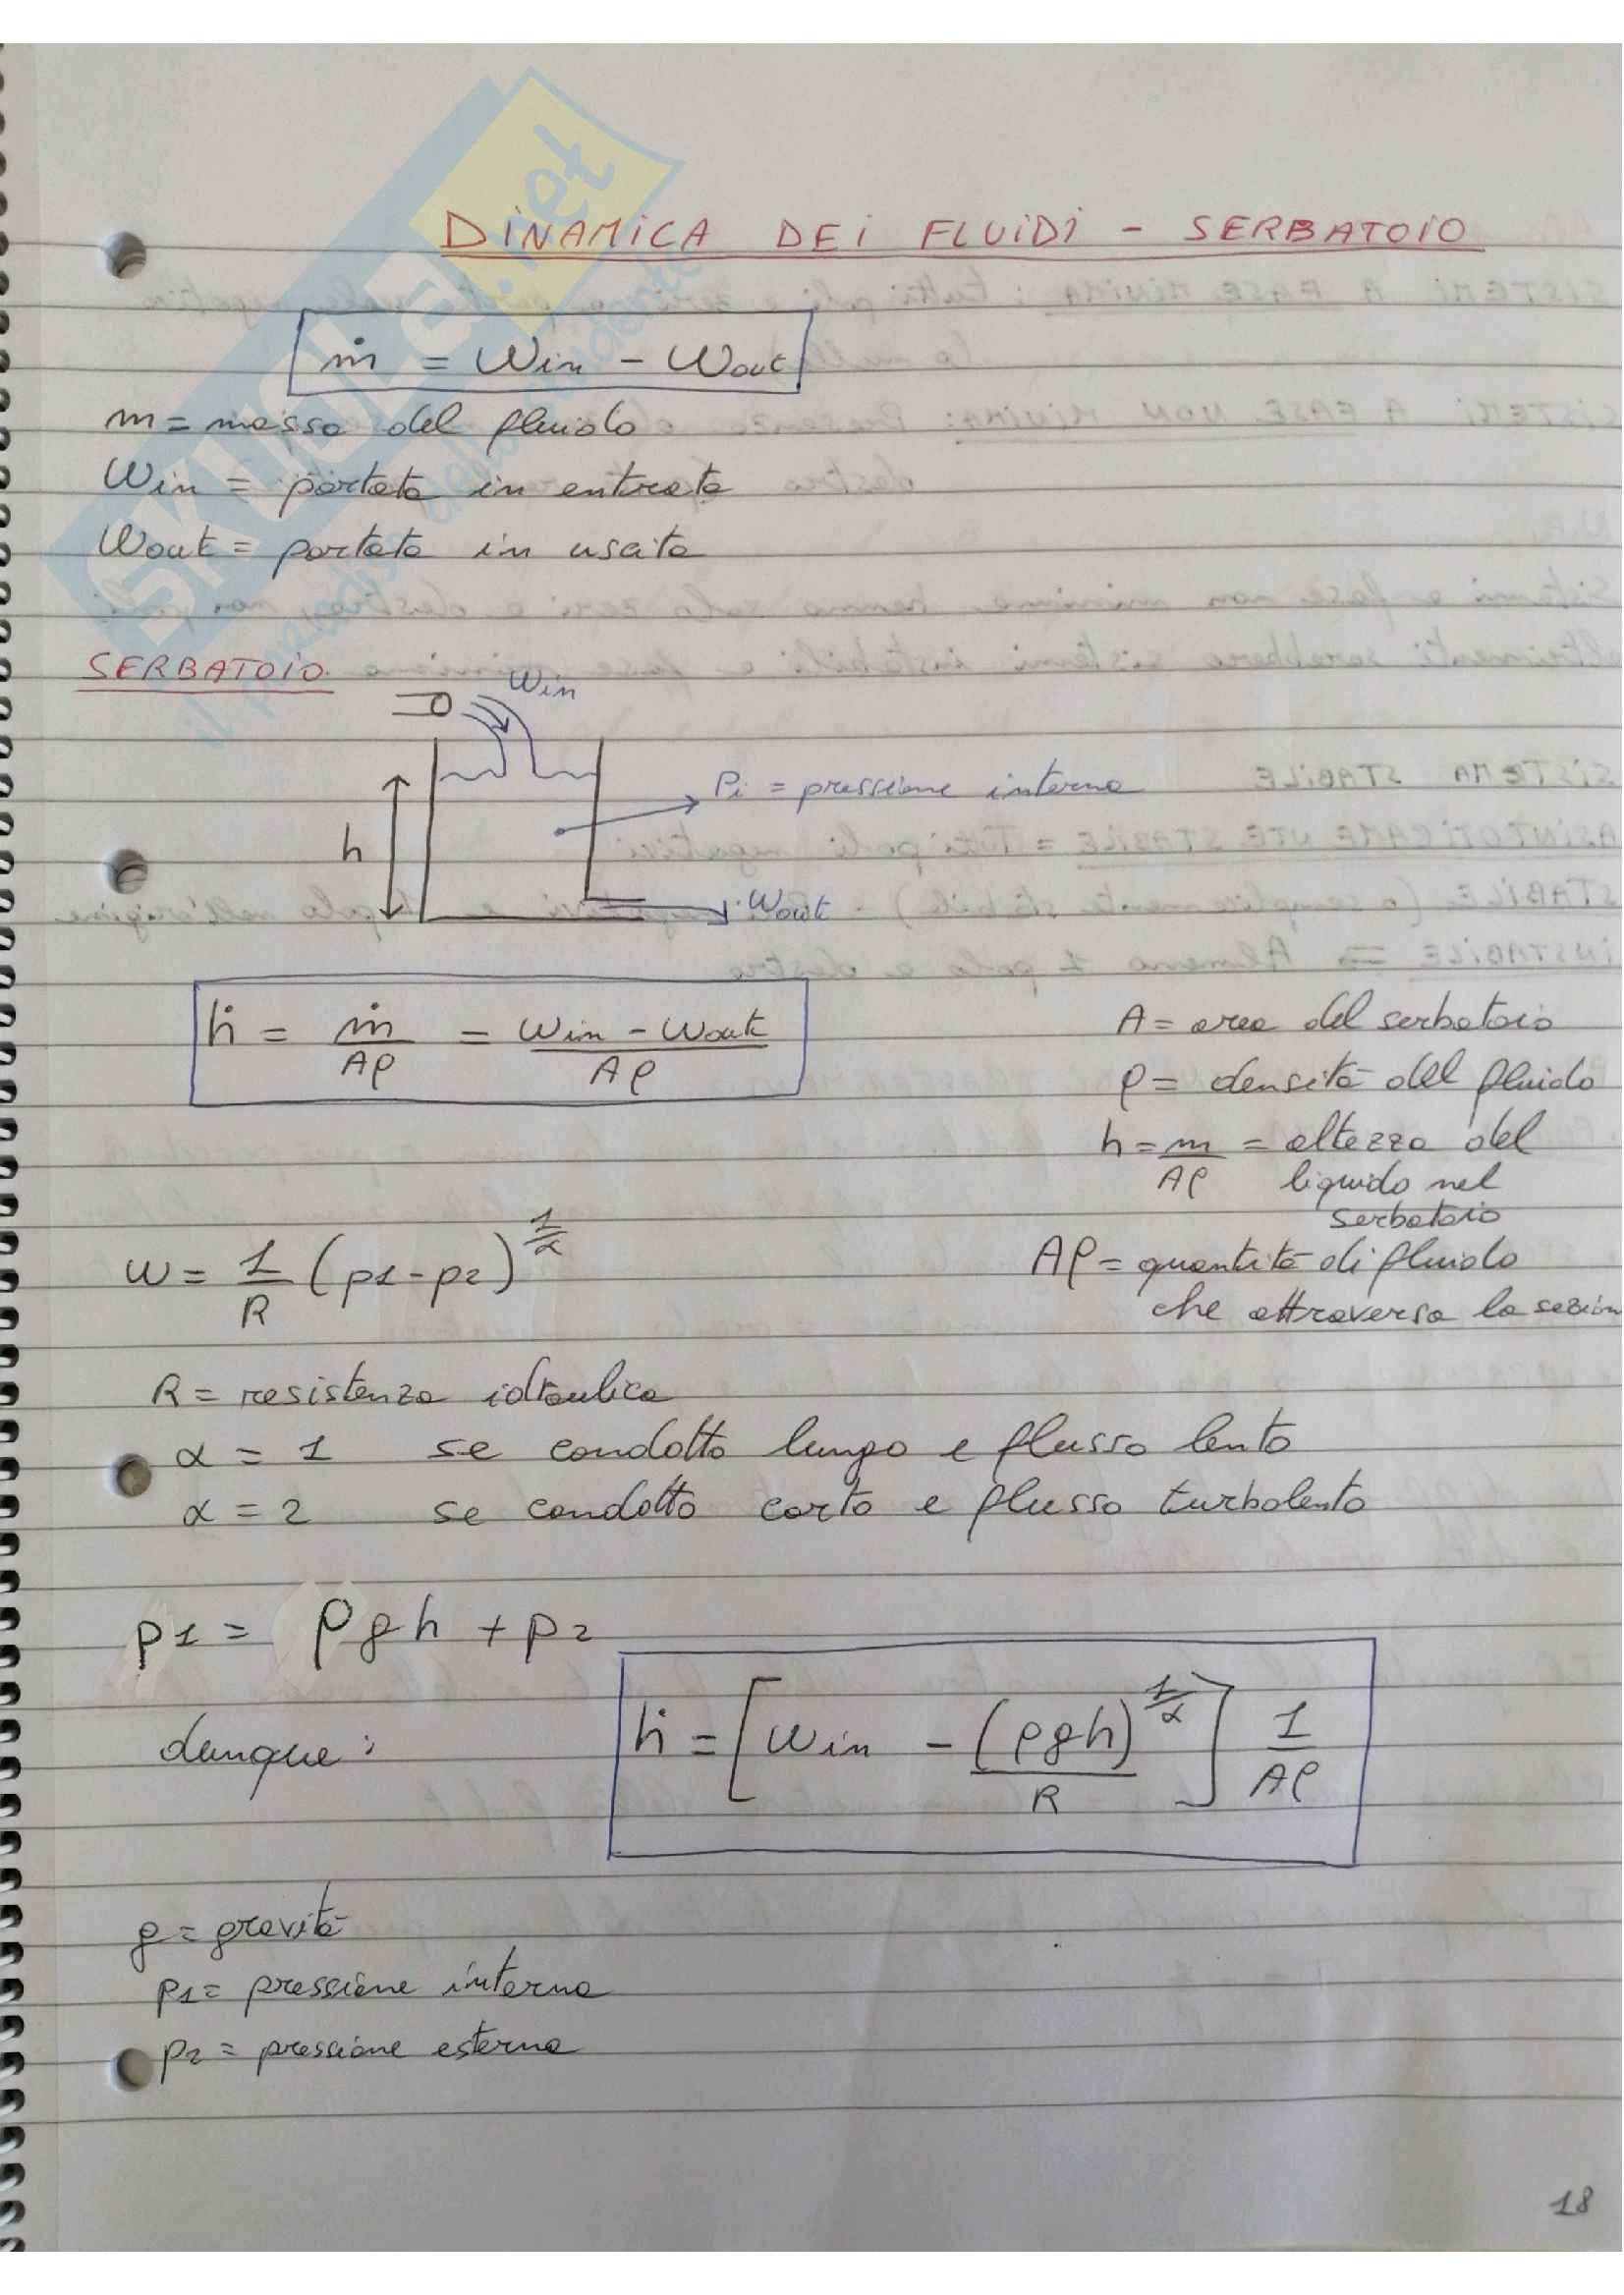 DINAMICA DEI FLUIDI - SERBATOIO
ṁ = Win - Wout
m = massa del fluido
Win = portata in entrata
Wout = portata in uscita
SERBATOIO
Win
Pi = pressione interna
h
Wout
ḣ = ṁ/Aρ = Win - Wout/Aρ
A = area del serbatoio
ρ = densità del fluido
h = m/Aρ = altezza del
liquido nel
serbatoio
w = 1/R (p1-p2)^1/α
Aρ = quantità di fluido
che attraversa la sezion
R = resistenza idraulica
α = 1 se condotto lungo e flusso lento
α = 2 se condotto corto e flusso turbolento
p1 = ρgh + p2
dunque: ḣ = [Win - (ρgh)^1/α / R] 1/Aρ
g = gravità
p1 = pressione interna
p2 = pressione esterna
18
SKUOLA.net